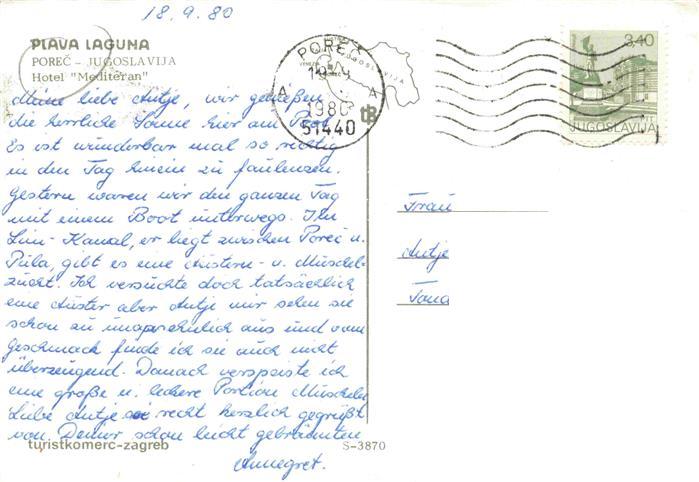 18.9.80
PLAVA LAGUNA
POREČ – JUGOSLAVIJA
Hotel "Mediteran"
Meine liebe Antje, wir genießen
die herrliche Sonne hier am Pool.
Es ist wunderbar mal so richtig
in den Tag hinein zu faulenzen.
Gestern waren wir den ganzen Tag
mit einem Boot unterwegs. Im
Lim-Kanal, er liegt zwischen Poreč u.
Pula, gibt es eine Austern- u. Muschel-
zucht. Ich versuchte doch tatsächlich
eine Auster aber Antje mir sehen sie
schon zu unansehnlich aus und vom
Geschmack finde ich sie auch nicht
überzeugend. Danach verspeiste ich
eine große u. leckere Portion Muscheln
Liebe Antje sei recht herzlich gegrüßt
von Deiner schon leicht gebräunten
Annegret.
turistkomerc-zagreb
S-3870
POREČ
JUGOSLAVIJA
A A
1980
51440
3,40
JUGOSLAVIJA
Frau
Antje